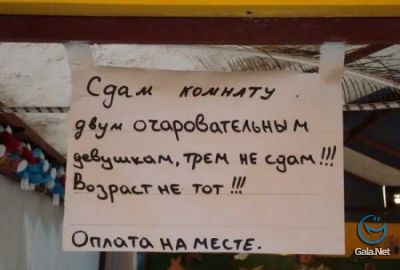 Сдам комнату.
двум очаровательным
девушкам, трем не сдам!!!
Возраст не тот!!!
Оплата на месте.
Gala.Net